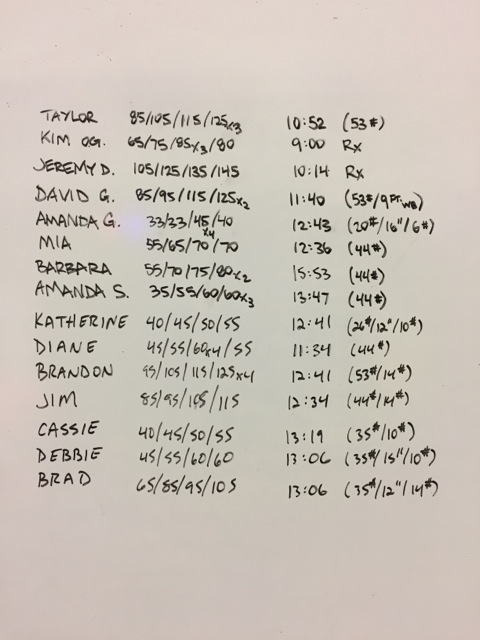 TAYLOR 85/105/115/125x3 10:52 (53#)
KIM OG. 65/75/85x3/80 9:00 Rx
JEREMY D. 105/125/135/145 10:14 Rx
DAVID G. 85/95/115/125x2 11:40 (53#/9FT. WB)
AMANDA G. 33/33/45x4/40 12:43 (20#/16"/6#)
MIA 55/65/70/70 12:36 (44#)
BARBARA 55/70/75/80x2 15:53 (44#)
AMANDA S. 35/55/60/60x3 13:47 (44#)
KATHERINE 40/45/50/55 12:41 (26#/12"/10#)
DIANE 45/55/60x4/55 11:34 (44#)
BRANDON 95/105/115/125x4 12:41 (53#/14#)
JIM 85/95/105/115 12:34 (44#/14#)
CASSIE 40/45/50/55 13:19 (35#/10#)
DEBBIE 45/55/60/60 13:06 (35#/15"/10#)
BRAD 65/85/95/105 13:06 (35#/12"/14#)